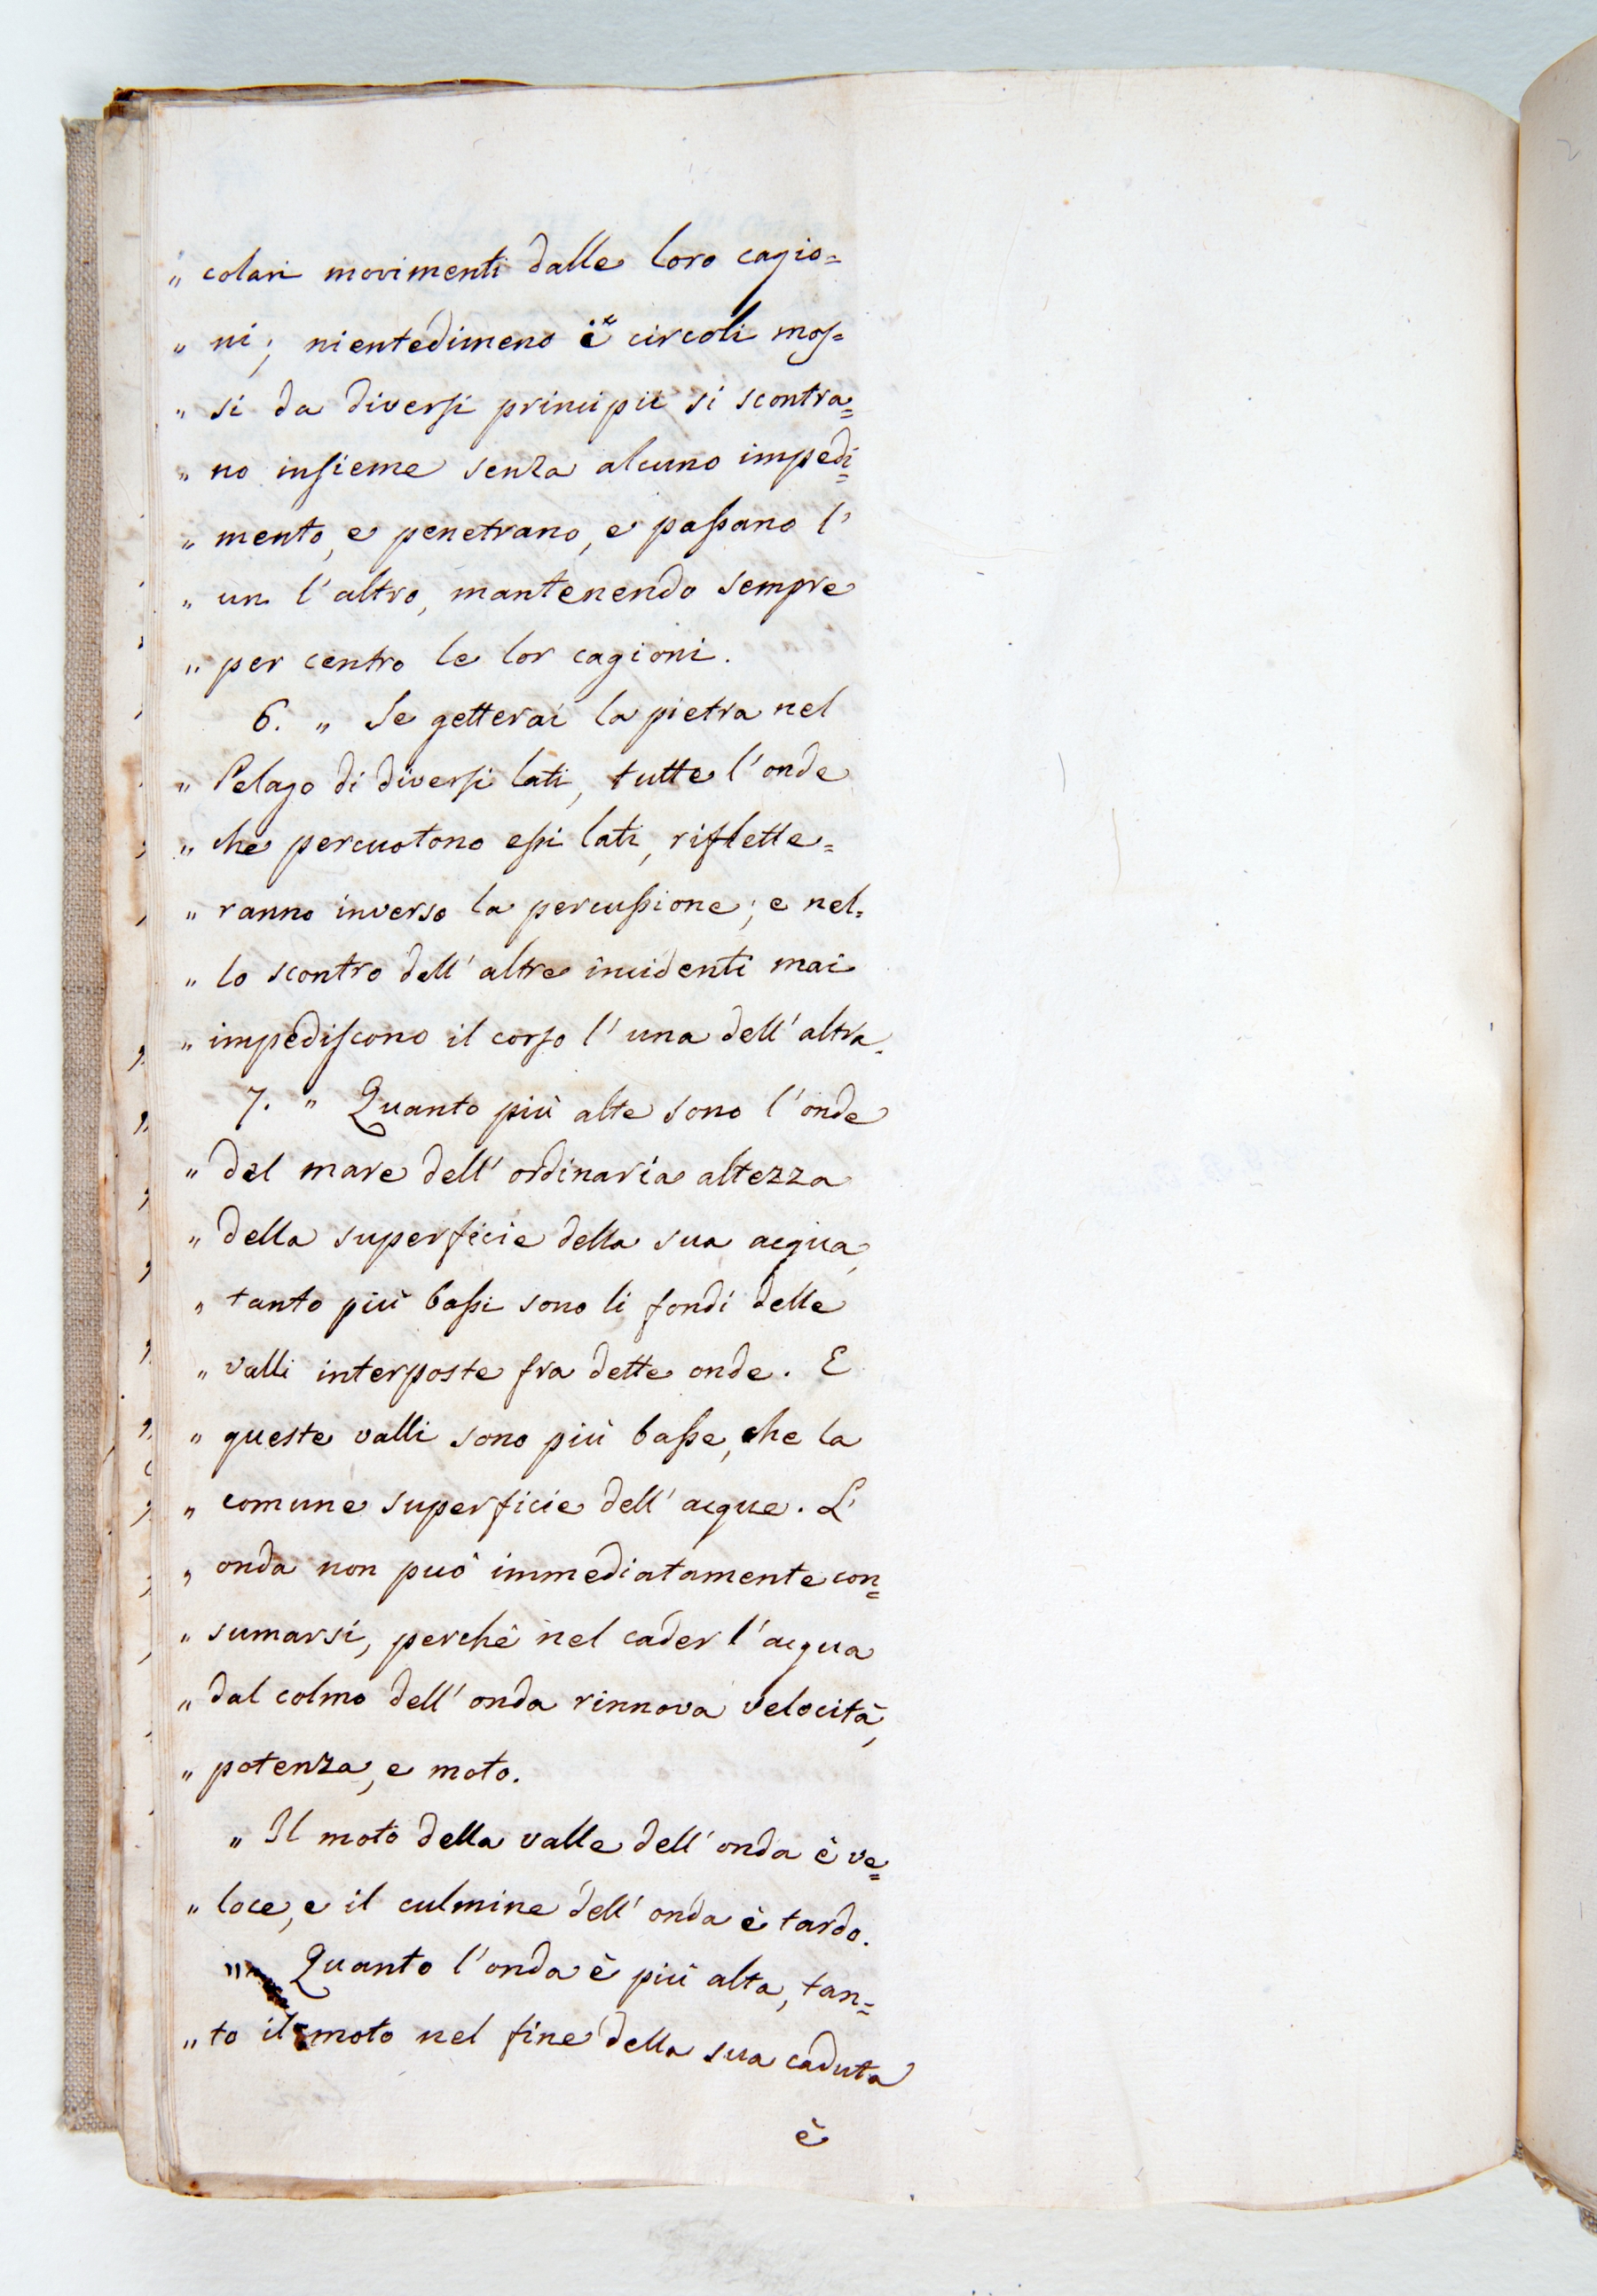 „ colari movimenti dalle loro cagio=
„ ni; nientedimeno i* circoli mos=
„ si da diversi principii si scontra=
„ no insieme senza alcuno impedi=
„ mento, e penetrano, e passano l'
„ un l'altro, mantenendo sempre
„ per centro le lor cagioni.
6. „ Se getterai la pietra nel
„ Pelago di diversi lati, tutte l'onde
„ che percuotono essi lati, riflette=
„ ranno inverso la percussione; e nel=
„ lo scontro dell'altre incidenti mai
„ impediscono il corso l'una dell'altra.
7. „ Quanto più alte sono l'onde
„ del mare dell'ordinaria altezza
„ della superficie della sua acqua,
„ tanto più bassi sono li fondi delle
„ valli interposte fra dette onde. E
„ queste valli sono più basse, che la
„ comune superficie dell'acque. L'
„ onda non può immediatamente con=
„ sumarsi, perchè nel cader l'acqua
„ dal colmo dell'onda rinnova velocità,
„ potenza, e moto.
„ Il moto della valle dell'onda è ve=
„ loce, e il culmine dell'onda è tardo.
„ Quanto l'onda è più alta, tan=
„ to il moto nel fine della sua caduta
è